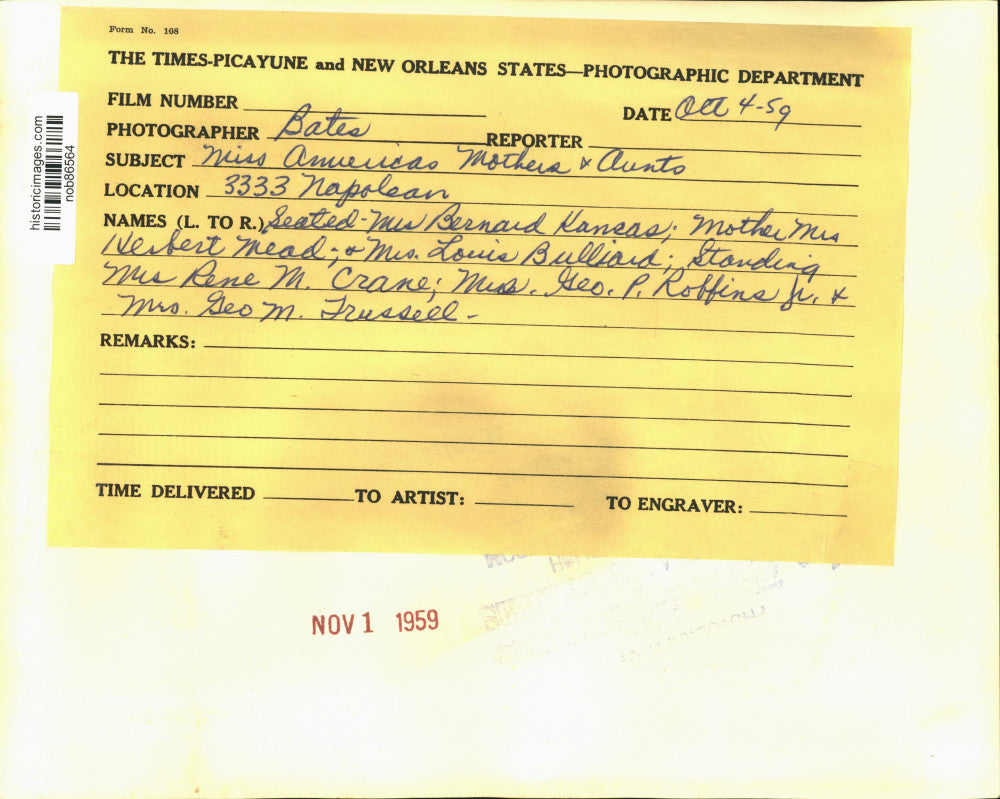 Form No. 108
THE TIMES-PICAYUNE and NEW ORLEANS STATES—PHOTOGRAPHIC DEPARTMENT
FILM NUMBER
DATE Oct 4-59
PHOTOGRAPHER Bates REPORTER
SUBJECT Miss Americas Mothers & Aunts
LOCATION 3333 Napolean
NAMES (L. TO R.) Seated-Mrs Bernard Kansas; Mother Mrs
Herbert Mead; & Mrs. Louis Bulliard; Standing
Mrs Rene M. Crane; Mrs. Geo. P. Robbins Jr. &
Mrs. Geo M. Trussell -
REMARKS:
TIME DELIVERED TO ARTIST: TO ENGRAVER:
NOV 1 1959
historicimages.com
nob86564